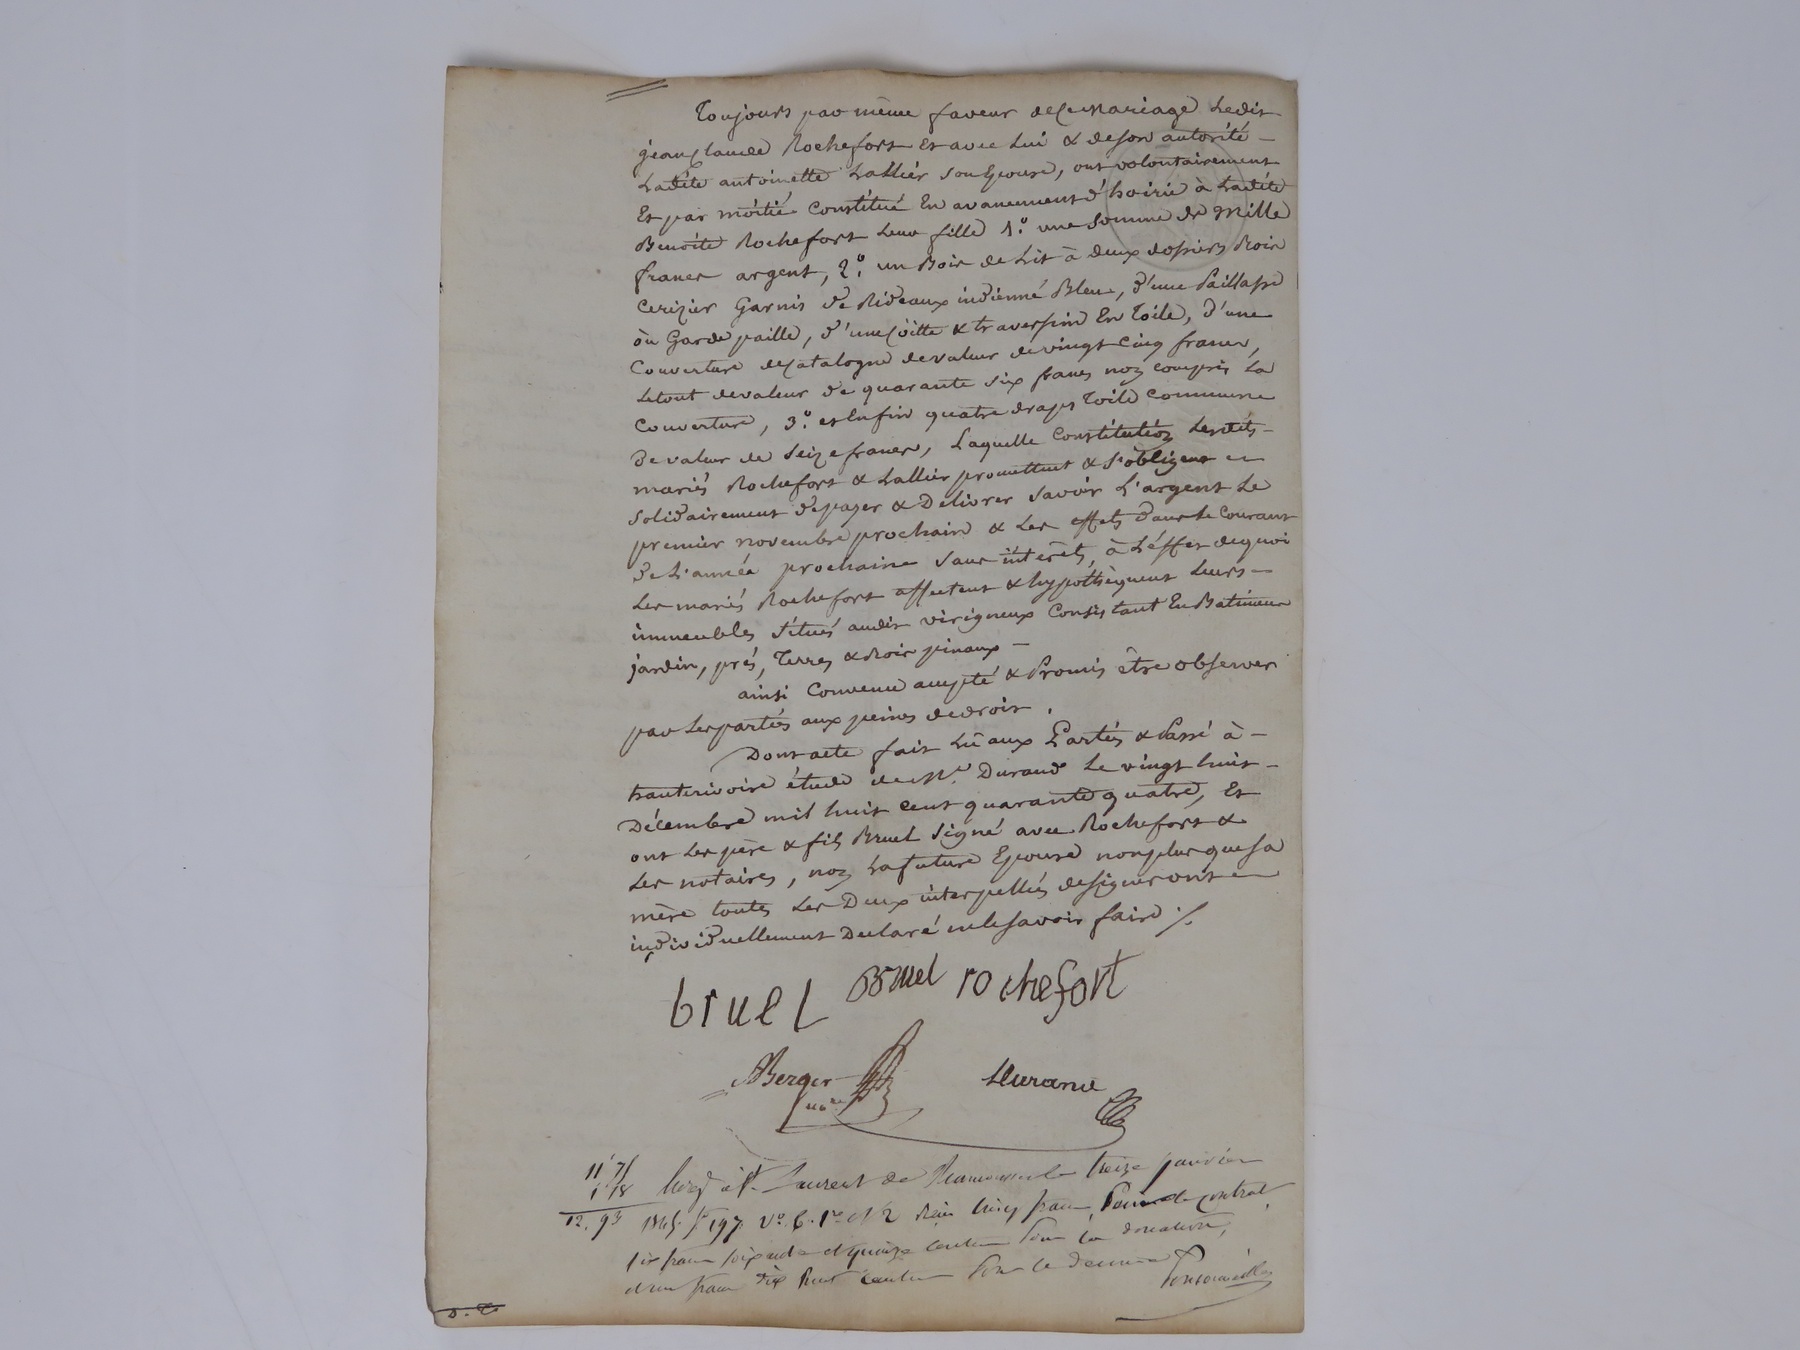 Toujours par même faveur de ce Mariage Ledit
jean Claude Rochefort et avec Lui & de son autorité –
Ladite antoinette Lallier son Epouse, ont volontairement
Et par moitié Constitué En avancement d'hoirie à Ladite
Benoite Rochefort Leur fille 1.º une Somme de Mille
francs argent, 2.º un Bois de Lit à deux dossiers Bois
Cerizier Garnis de Rideaux indienne Bleue, d'une Paillasse
ou Garde paille, d'une Coitte & traversin En Toile, d'une
Couverture de Catalogne de valeur de vingt Cinq francs,
Le tout de valeur de quarante six francs non compris La
Couverture, 3.º et Enfin quatre draps Toile Commune
De valeur de Seize francs, Laquelle Constitution Lesdits –
mariés Rochefort & Lallier promettent & s'obligent –
Solidairement de payer & Délivrer Savoir L'argent Le
premier novembre prochain & Les effets dans Le Courant
De L'année prochaine Sans intérêts, à L'éffet de quoi
Les mariés Rochefort affectent & hypothèquent Leurs –
immeubles Situés audit virigneux Consistant En Batiments
jardin, prés, Terres & Bois pinaux –
ainsi Convenu accepté & Promis être observer
par Les parties aux peines de droit .
Dont acte fait Lû aux Parties & Passé à –
hauterivoire étude de Mᵉ. Durand Le vingt huit –
Décembre mil huit cent quarante quatre, Et
ont Les père & fils Bruel Signé avec Rochefort &
Les notaires, non La future Epouse non plus que Sa
mère toutes Les Deux interpellées de signer ont –
individuellement Déclaré ne le savoir faire ./.
bruel Bruel rochefort
Berger nre Durand
11 7/8 Enregé à St. Laurent de Chamousset le treize janvier
1 1/8
12. 93 1845 fº 197 Vº C. 1re et 2 Reçu Cinq francs Pour le contrat,
six francs soixante et quinze centimes Pour la donation,
et un franc dix huit centimes Pour le décime
D. C.